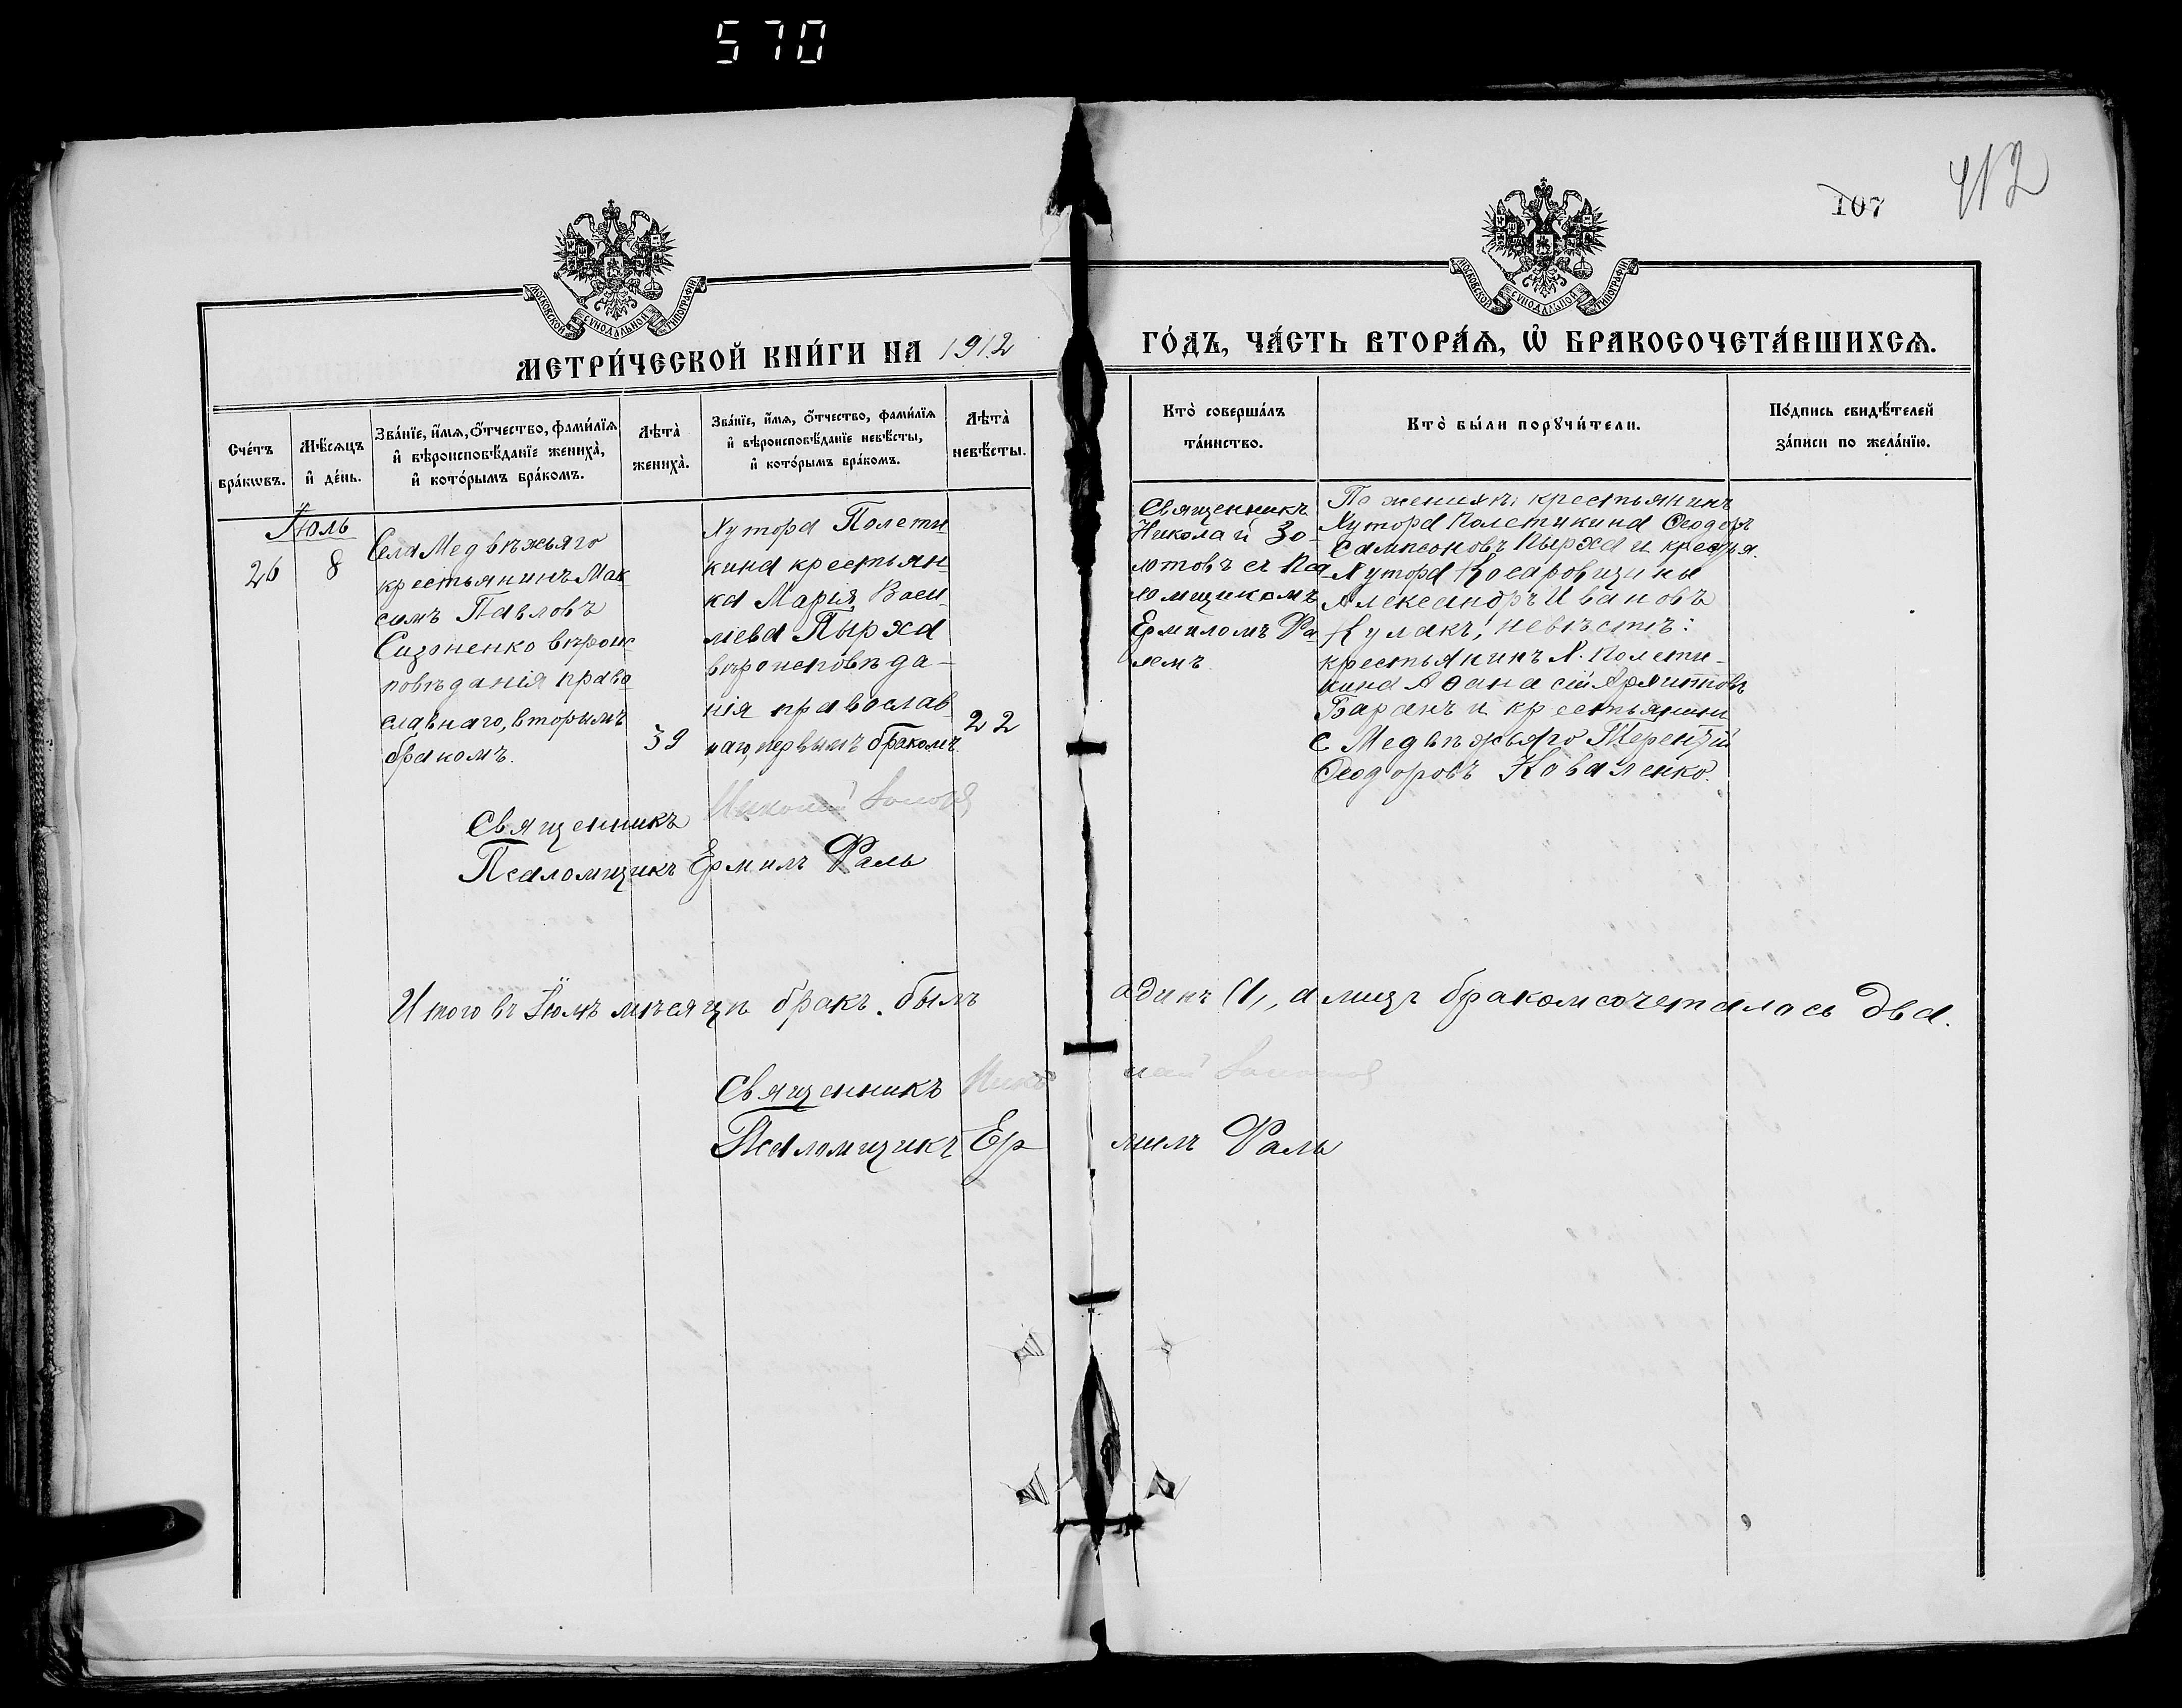 570
412
107
МОСКОВСКОЙ СѴНОДАЛЬНОЙ ТИПОГРАФІИ
МОСКОВСКОЙ СѴНОДАЛЬНОЙ ТИПОГРАФІИ
МЕТРИ́ЧЕСКОЙ КНИ́ГИ НА 1912
ГО́ДЪ, ЧА́СТЬ ВТОРА́Ѧ, Ѡ҆ БРАКОСОЧЕТА́ВШИХСѦ.
Сче́тъ
бра́кѡвъ.
Мѣ́сѧцъ
и҆ де́нь.
Зва́нїе, и҆́мѧ, ѻ҆́тчество, фами́лїѧ
и҆ вѣроисповѣ́данїе жениха̀,
и҆ кото́рымъ бра́комъ.
Лѣта̀
жениха̀.
Зва́нїе, и҆́мѧ, ѻ҆́тчество, фами́лїѧ
и҆ вѣроисповѣ́данїе невѣ́сты,
и҆ кото́рымъ бра́комъ.
Лѣта̀
невѣ́сты.
Кто̀ соверша́лъ
та́инство.
Кто̀ бы́ли порꙋчи́тели.
По́дпись свидѣ́телей
за́писи по жела́нїю.
Іюль
26
8
Села Медвѣжьяго
крестьянинъ Мак
симъ Павловъ
Сизоненко вѣроис
повѣданія право
славнаго, вторымъ
бракомъ.
39
Хутора Полети
кина крестьян
ка Марія Васи
лієва Пырха
вѣроисповѣда-
нія православ
наго, первымъ бракомъ.
22
Священникъ
Николай Зо-
лотовъ съ Пса
ломщикомъ
Ермиломъ Фа
лемъ.
По женихѣ: крестьянинъ
Хутора Полетикина Ѳеодоръ
Сампсоновъ Пырха и крестья.
Хутора Косаровщины
Александръ Ивановъ
Кулакъ; невѣстѣ:
крестьянинъ Х. Полети-
кина Аѳанасій
Баранъ и крестьянинъ
с Медвѣжьяго Терентій
Ѳеодоровъ Коваленко.
Священникъ Николай Золотов
Псаломщикъ Ермилъ Фаль
Итого въ Іюлѣ мѣсяцѣ бракъ былъ одинъ (1), а лицъ бракомсочеталось два.
Священникъ Николай Золотов
Псаломщикъ Ермилъ Фаль